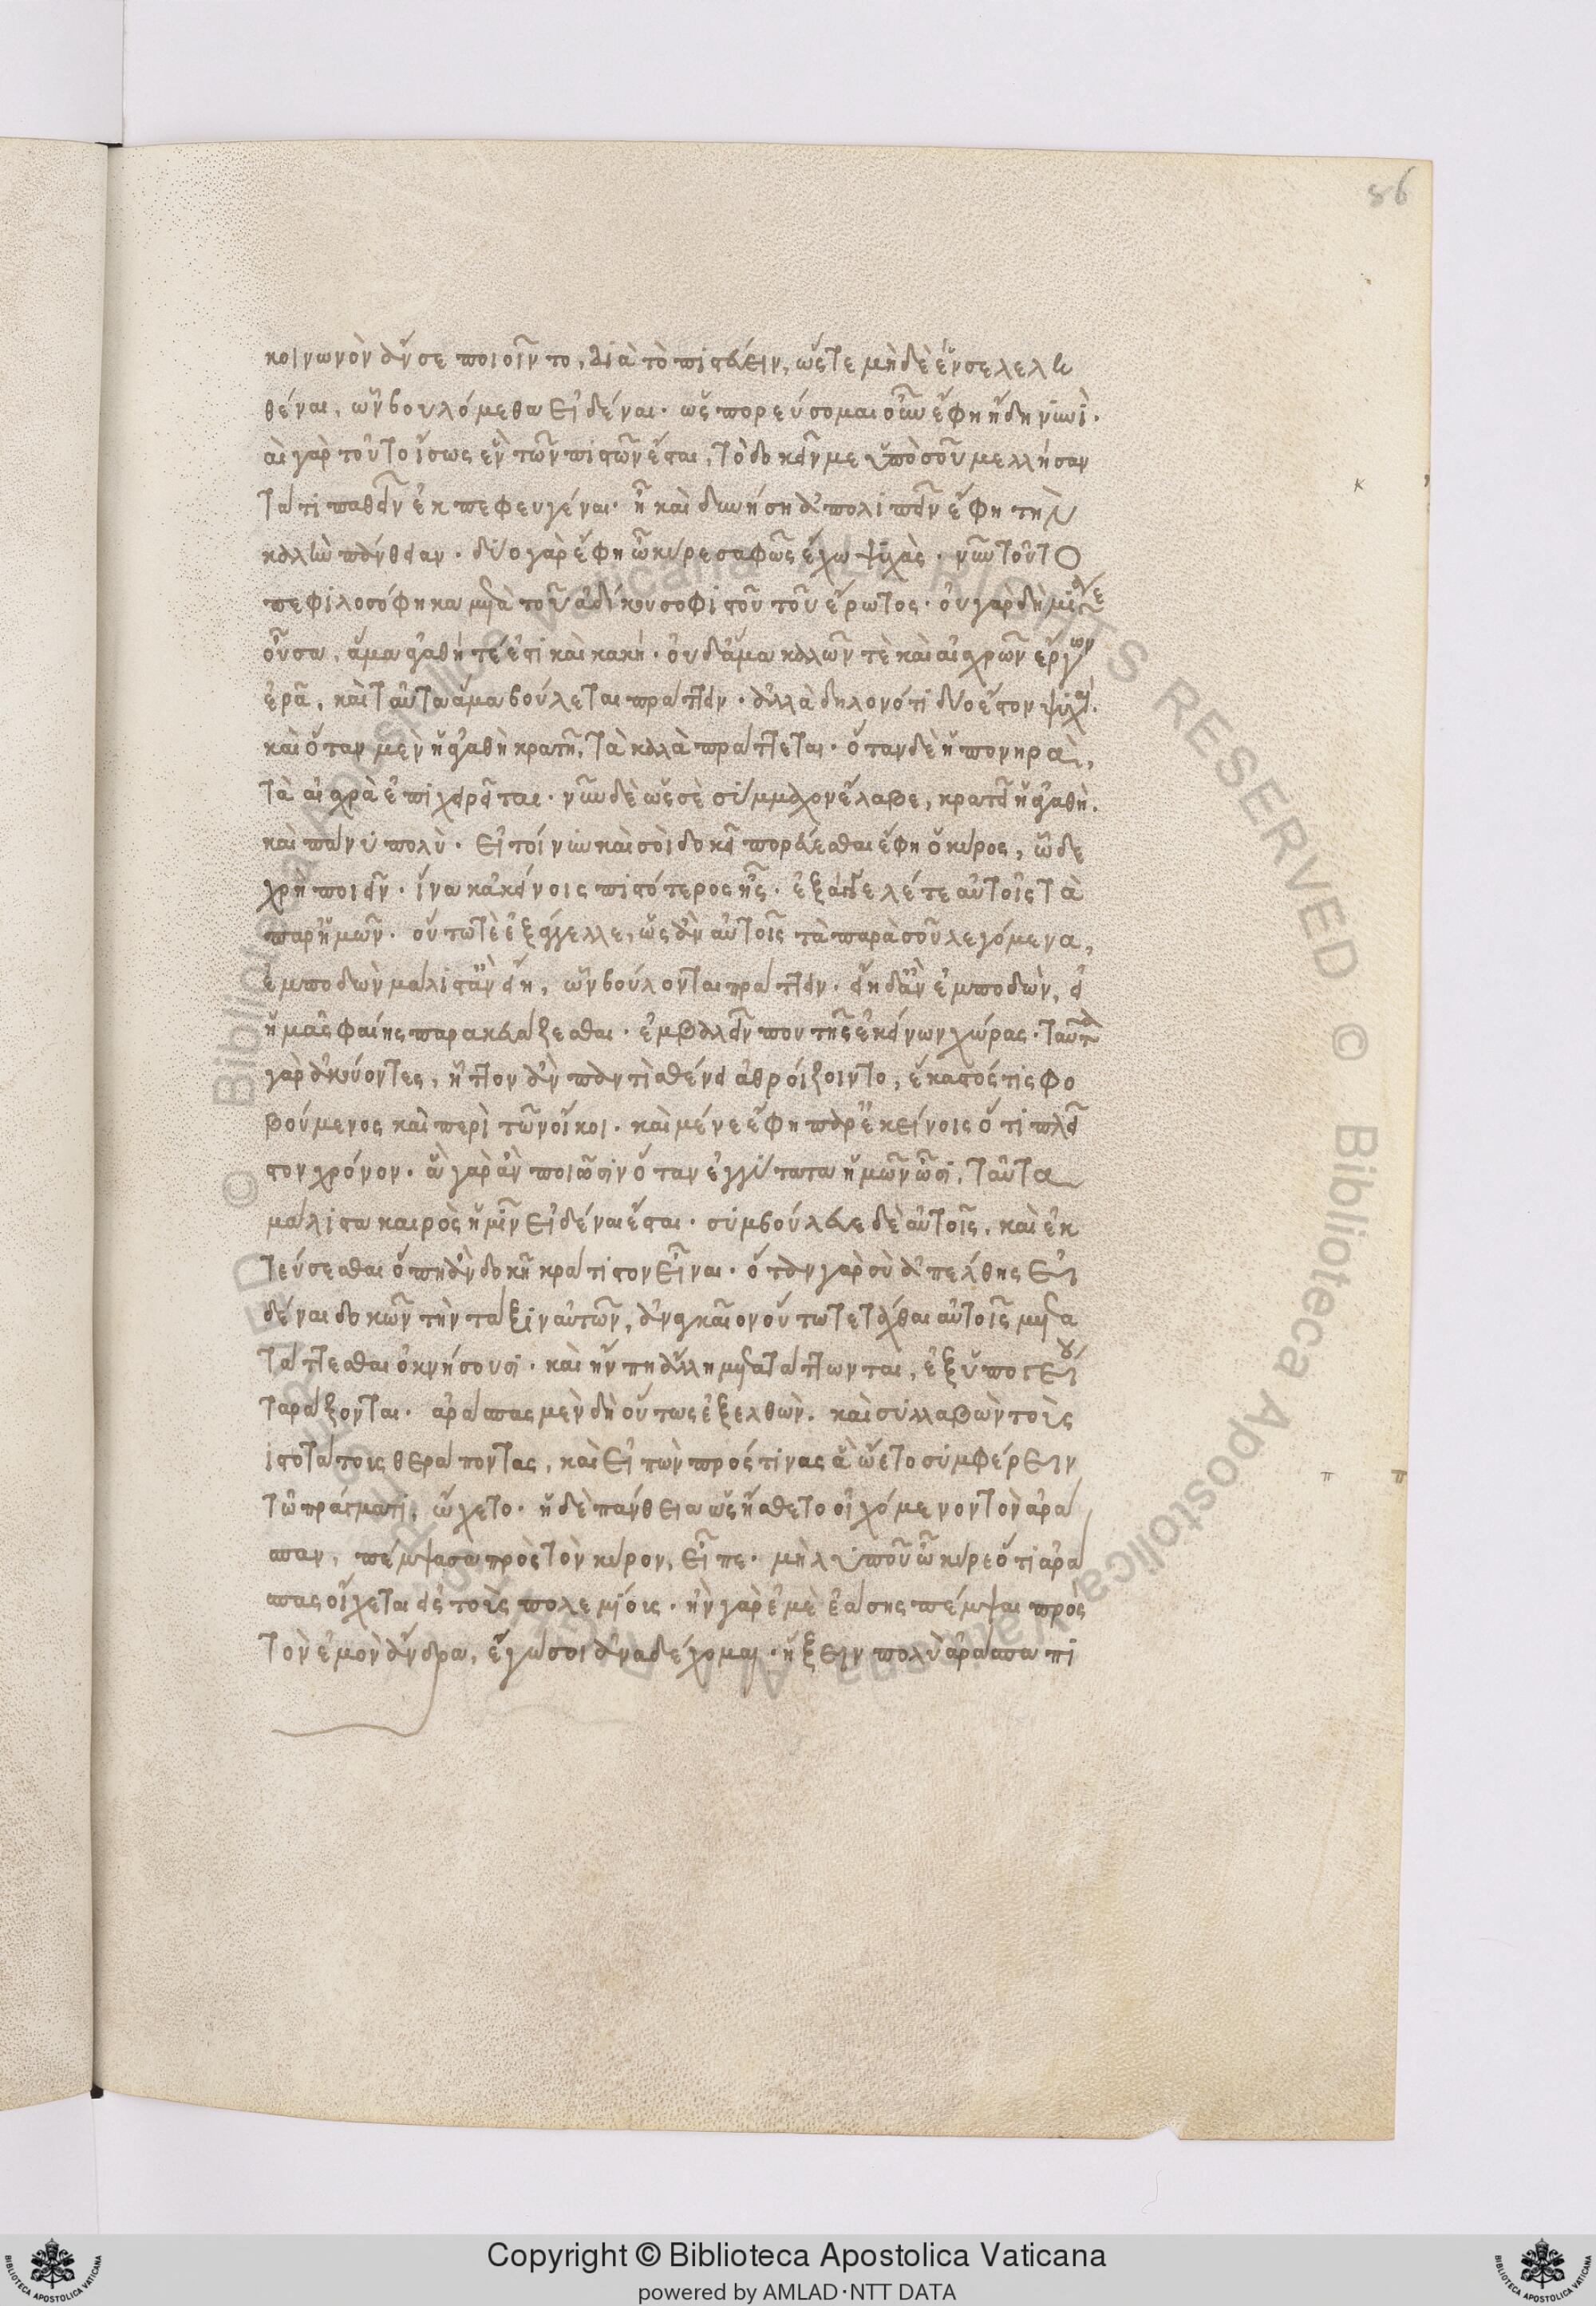 86
κοινωνὸν ἄν σε ποιοῖντο, διὰ τὸ πιστεύειν, ὥστε μηδὲ ἕν σε λελη
θέναι, ὧν βουλόμεθα εἰδέναι. ὡς πορεύσομαι οὖν ἔφη ἤδη νυνὶ.
καὶ γὰρ τοῦτο ἴσως ἓν τῶν πιστῶν ἔσται, τὸ δοκεῖν με ὑπὸ σοῦ μελλήσαν
τά τι παθεῖν ἐκπεφευγέναι. ἦ καὶ δυνήση ἀπολιπεῖν ἔφη τὴν
καλὴν πάνθειαν. δύο γὰρ ἔφη ὦ κῦρε σαφῶς ἔχω ψυχὰς. νῦν τοῦτο
πεφιλοσόφηκα μετὰ τοῦ ἀδίκου σοφιστοῦ τοῦ ἔρωτος. οὐ γὰρ δὴ μία γε
οὖσα, ἅμα ἀγαθή τέ ἐστι καὶ κακή. οὐδ' ἅμα καλῶν τὲ καὶ αἰσχρῶν ἔργων
ἐρᾶ, καὶ ταῦτα ἅμα βούλεται πράττειν. ἀλλὰ δηλονότι δύο ἐστον ψυχά.
καὶ ὅταν μὲν ἡ ἀγαθὴ κρατῆ, τὰ καλὰ πράττεται. ὅταν δὲ ἡ πονηρὰ,
τὰ αἰσχρὰ ἐπιχειρεῖται. νῦν δὲ ὡς σὲ σύμμαχον ἔλαβε, κρατεῖ ἡ ἀγαθὴ.
καὶ πάνυ πολύ. εἰ τοίνυν καὶ σοὶ δοκεῖ πορεύεσθαι ἔφη ὁ κῦρος, ὧδε
χρὴ ποιεῖν. ἵνα κἀκείνοις πιστότερος ἦς. ἐξάγγελέ τε αὐτοῖς τὰ
παρ' ἡμῶν. οὕτω τὲ ἐξάγγελλε, ὡς ἂν αὐτοῖς τὰ παρὰ σοῦ λεγόμενα,
ἐμποδὼν μάλιστ' ἂν εἴη, ὧν βούλονται πράττειν. εἴη δ' ἂν ἐμποδὼν, εἰ
ἡμᾶς φαίης παρασκευάζεσθαι. ἐμβαλεῖν που τῆς ἐκείνων χώρας. ταῦτα
γὰρ ἀκούοντες, ἧττον ἂν παντὶ σθένει ἀθροίζοιντο, ἕκαστός τις φο
βούμενος καὶ περὶ τῶν οἴκοι. καὶ μένε ἔφη παρ' ἐκείνοις ὅτι πλεῖ
στον χρόνον. ἃ γὰρ ἂν ποιῶσιν ὅταν ἐγγύτατα ἡμῶν ὦσι, ταῦτα
μάλιστα καιρὸς ἡμῖν εἰδέναι ἔσται. συμβούλευε δὲ αὐτοῖς, καὶ ἐκ
τεύσεσθαι ὅπη ἂν δοκῆ κράτιστον εἶναι. ὅταν γὰρ σὺ ἀπέλθης εἰ
δέναι δοκῶν τὴν τάξιν αὐτῶν, ἀναγκαῖον οὕτω τετάχθαι αὐτοῖς μετα
τάττεσθαι ὀκνήσουσι. καὶ ἤν πη ἄλλη μετατάττωνται, ἐξ ὑπογείου
ταράξονται. ἀράσπας μὲν δὴ οὕτως ἐξελθὼν. καὶ συλλαβὼν τοὺς
ιστοτάτους θεράποντας, καὶ εἰπὼν πρός τινας ἃ ὤετο συμφέρειν
τῶ πράγματι, ὤχετο. ἡ δὲ πάνθεια ὡς ἤσθετο οἰχόμενον τὸν ἀρά
σπαν, πέμψασα πρὸς τὸν κῦρον, εἶπε. μὴ λυποῦ ὦ κῦρε ὅτι ἀρά
σπας οἴχεται εἰς τοὺς πολεμίους. ἢν γὰρ ἐμὲ ἐάσης πέμψαι πρός
τὸν ἐμὸν ἄνδρα, ἐγώ σοι ἀναδέχομαι. ἥξειν πολὺ ἀράσπα πι
Copyright © Biblioteca Apostolica Vaticana
powered by AMLAD·NTT DATA